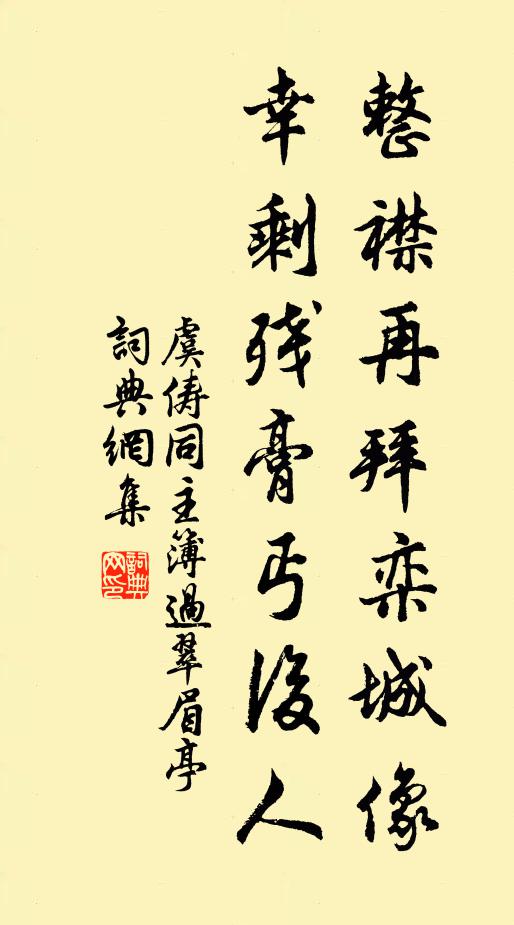 整襟再拜栾城像
幸剩残膏丐後人
虞儔同主簿過翠眉亭
詞典網集
詞典網印